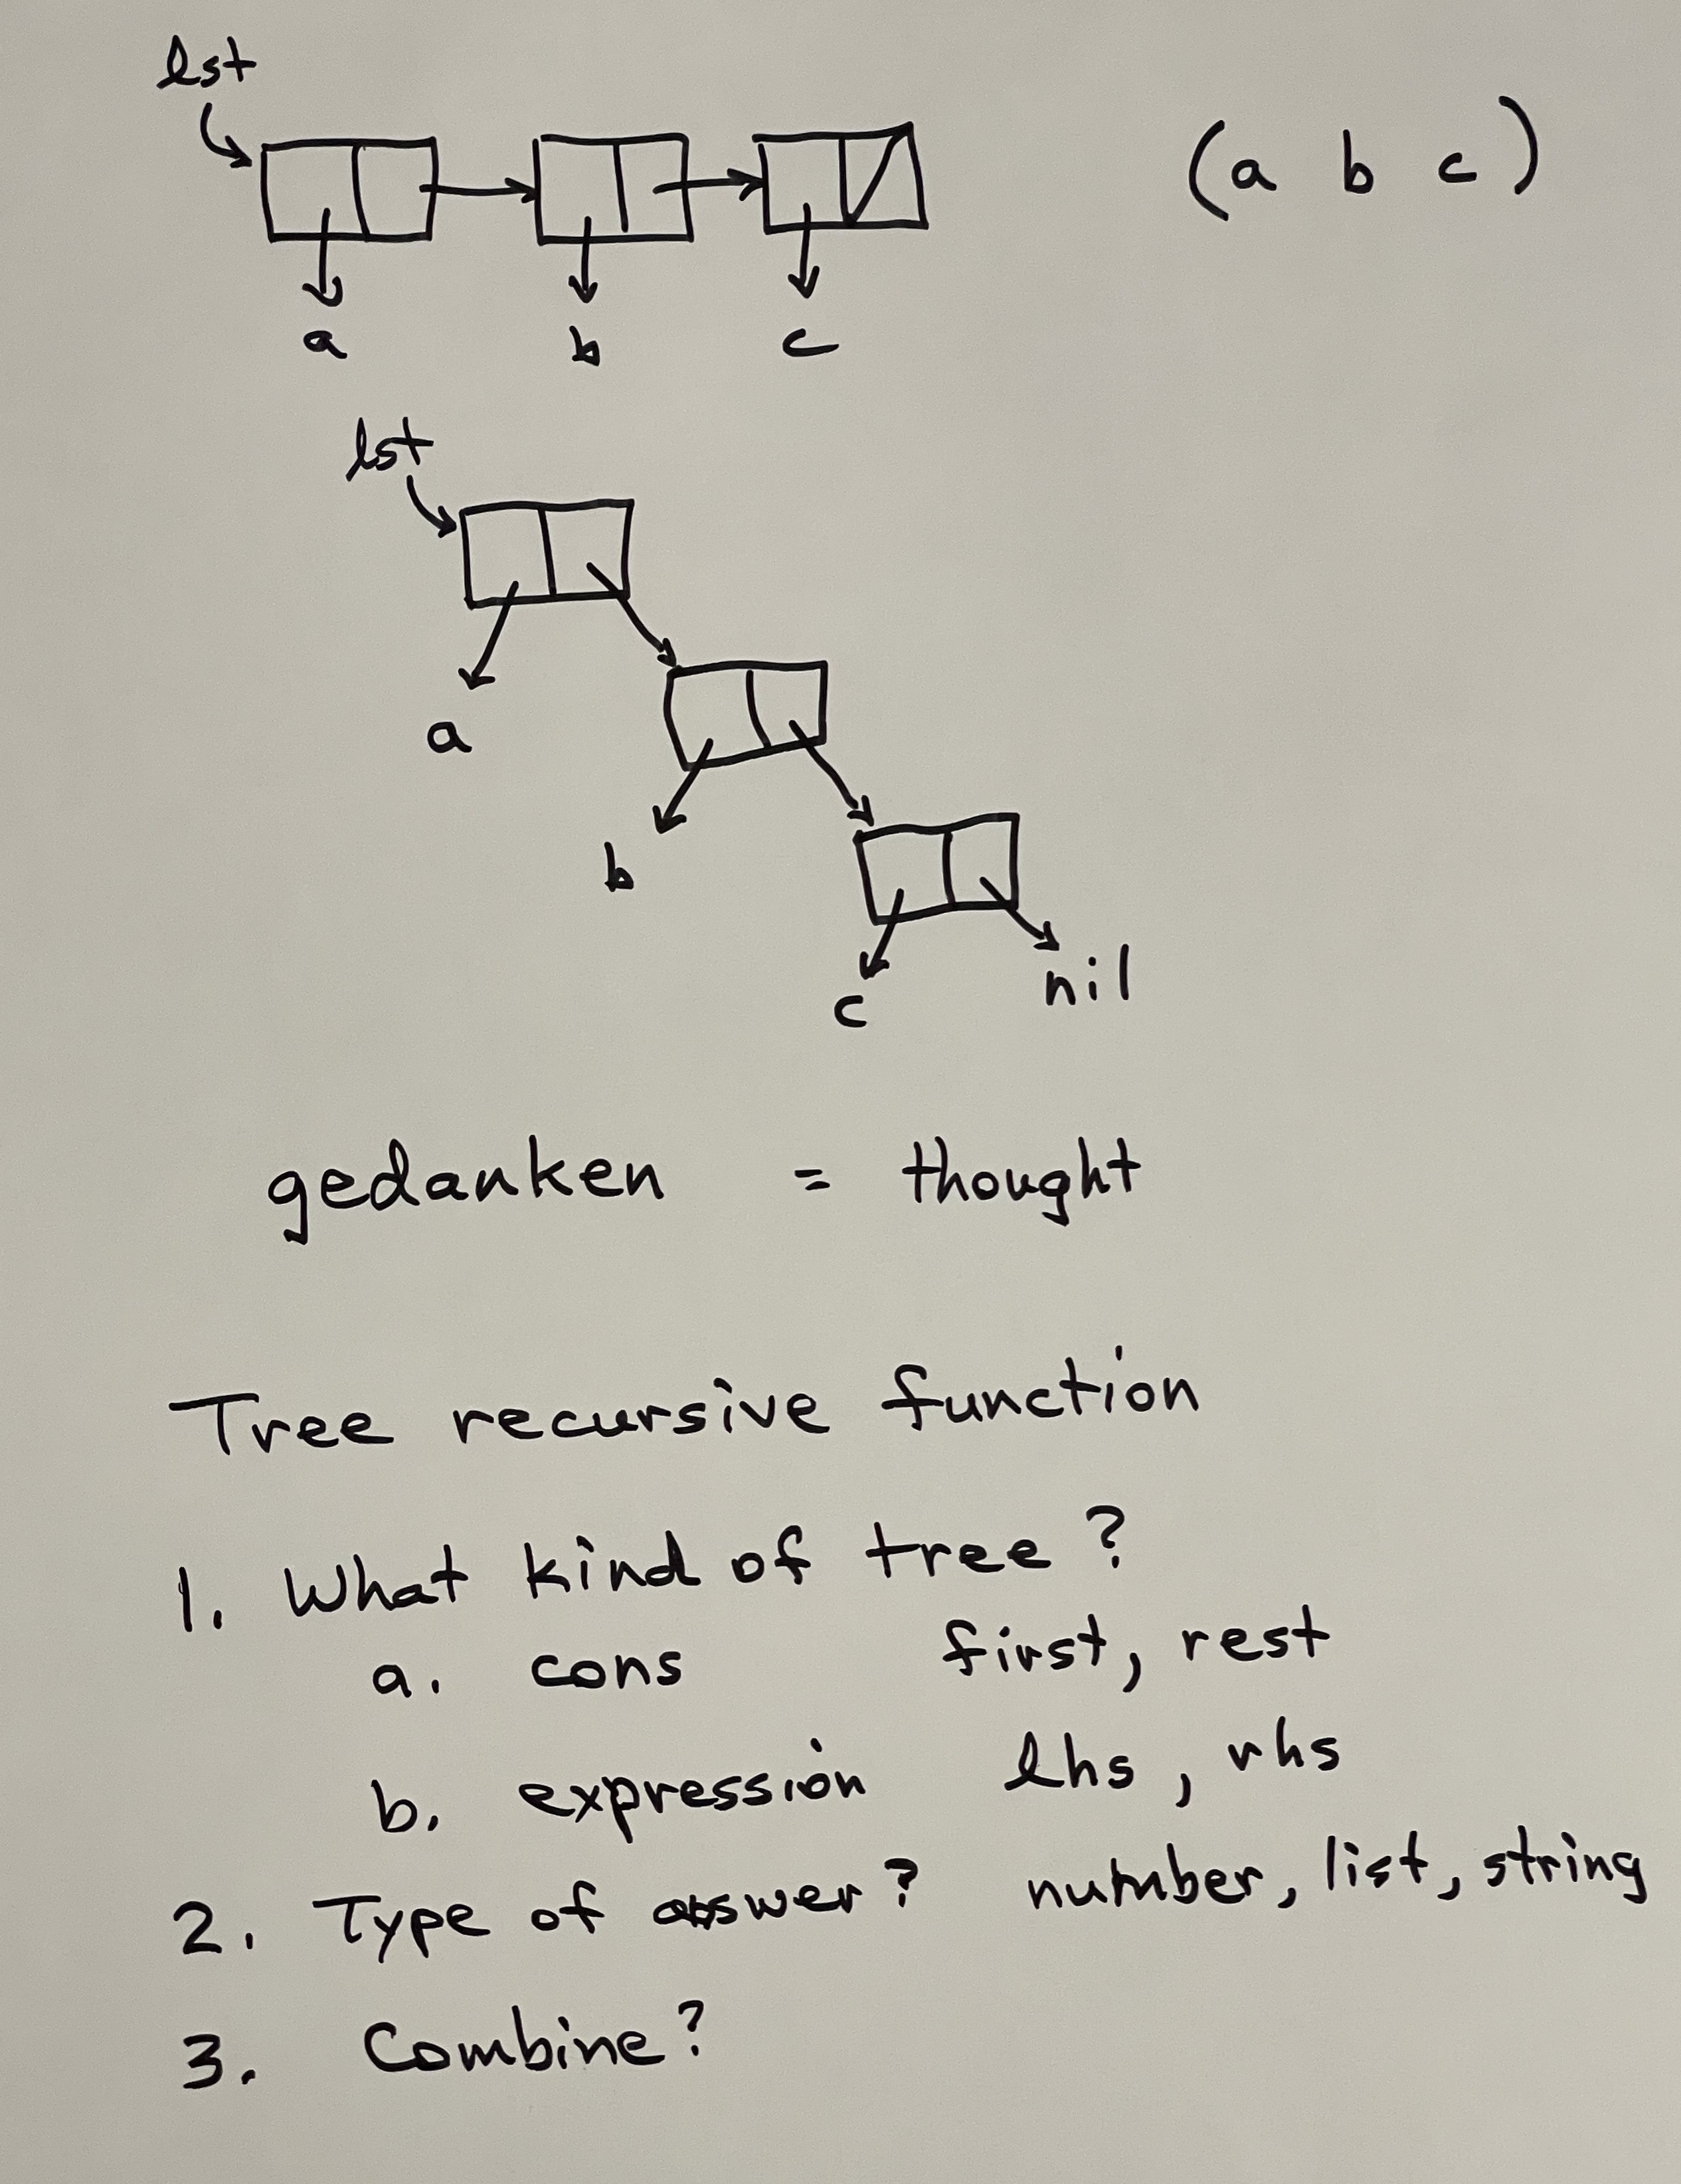 lst
(a b c)
a b c
lst
a
b
c nil
gedanken = thought
Tree recursive function
1. What kind of tree?
a. cons first, rest
b. expression lhs, rhs
2. Type of answer? number, list, string
3. Combine?